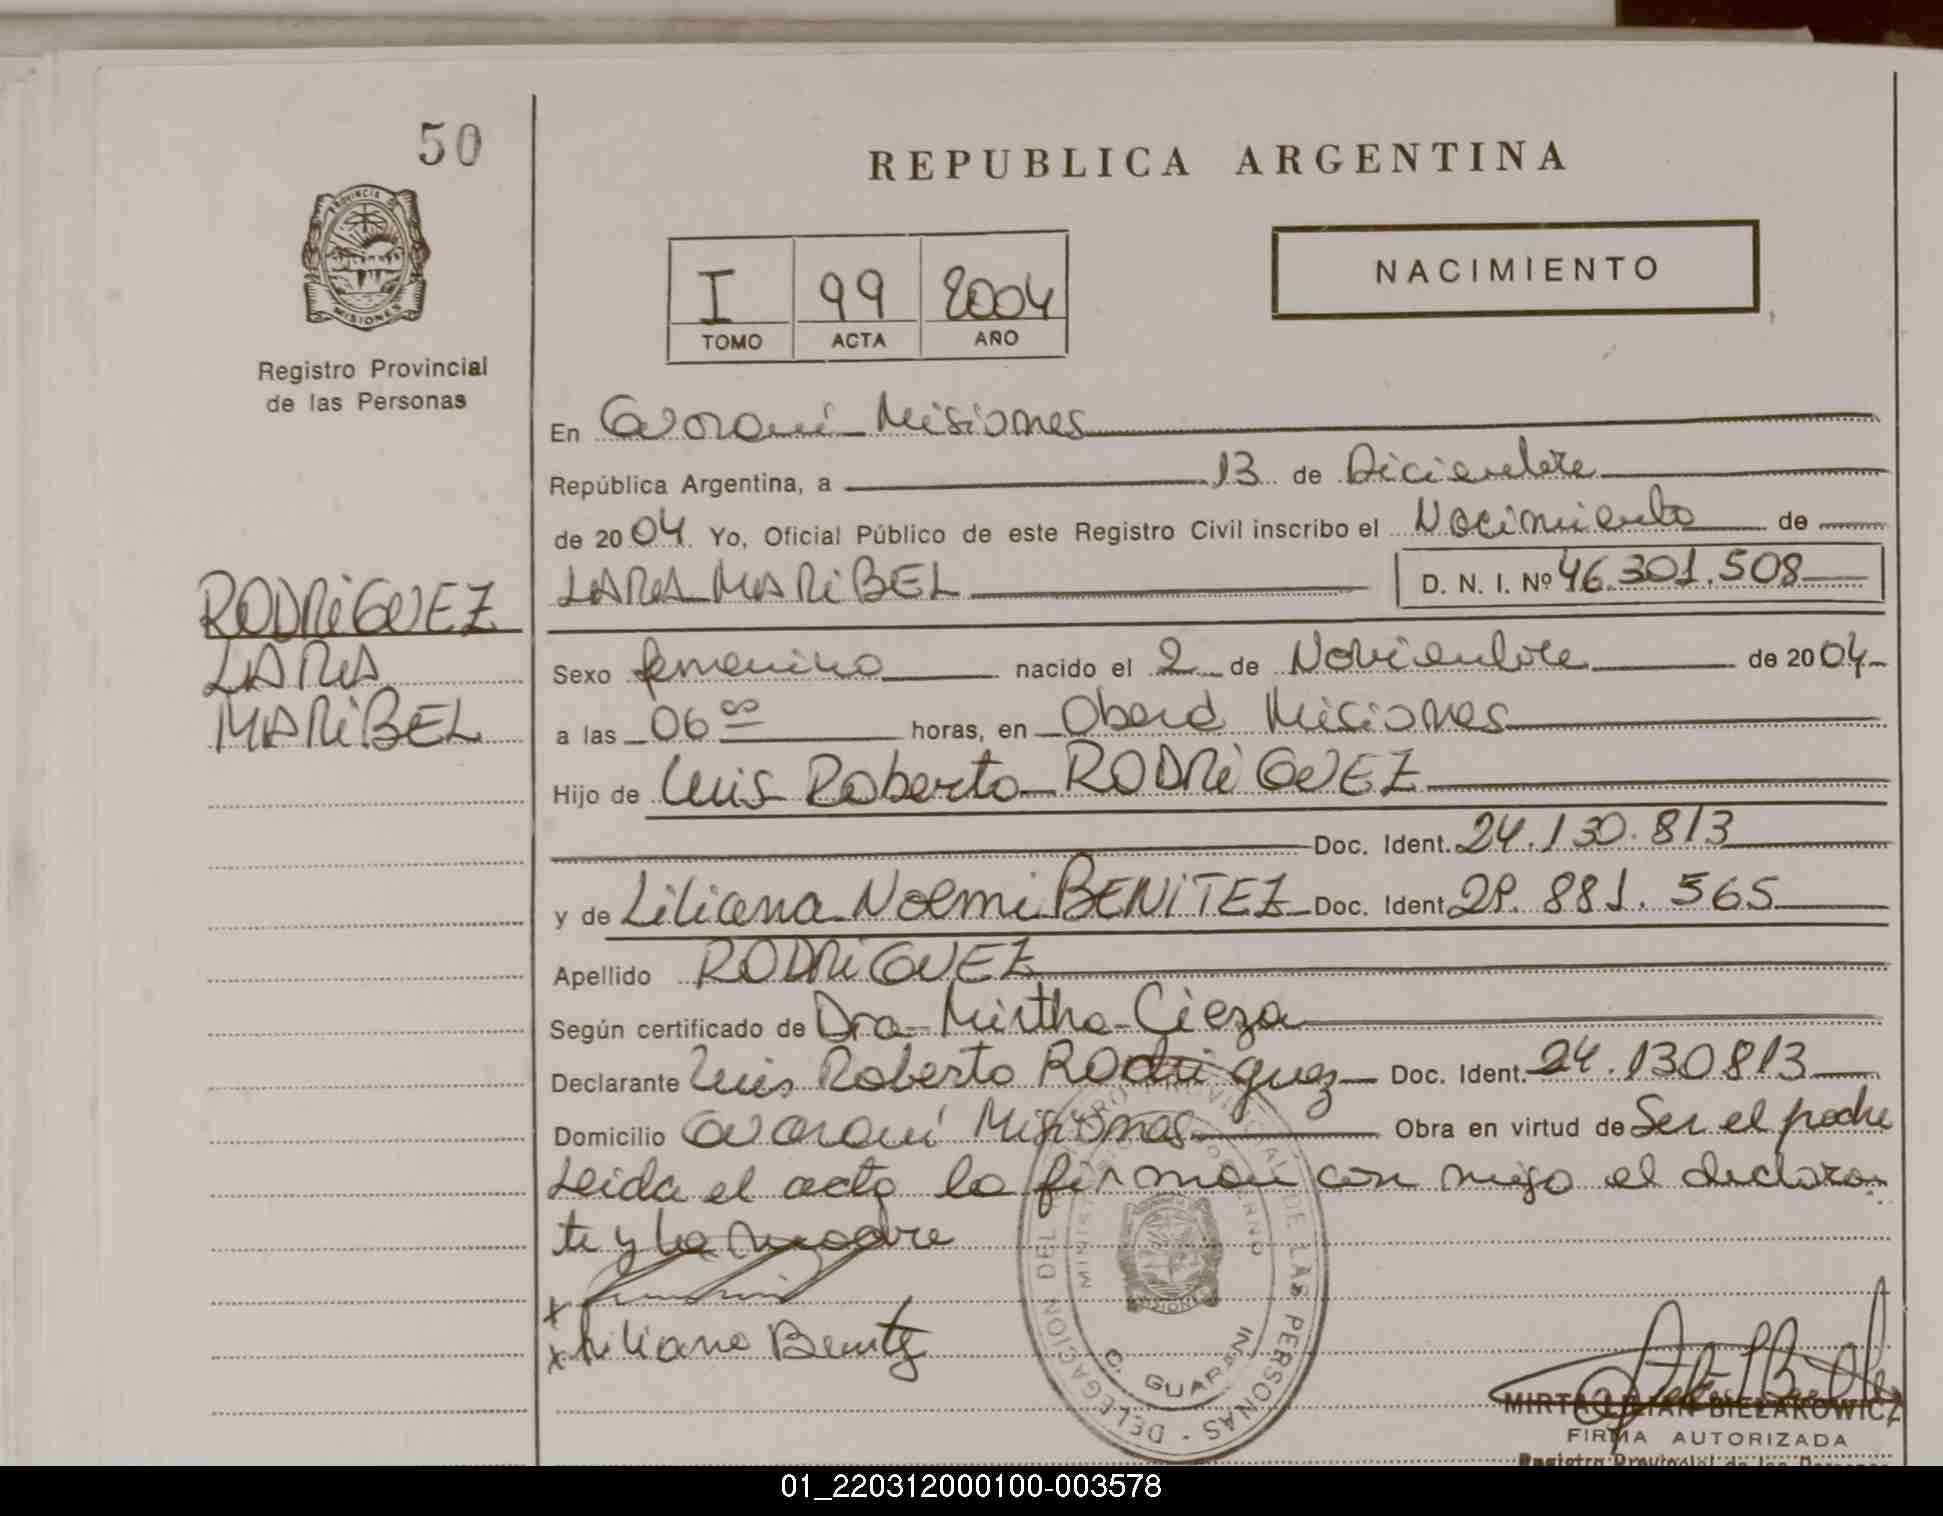 50
PROVINCIA DE
MISIONES
Registro Provincial
de las Personas
RODRiGUEZ
LARA
MARiBEL
REPUBLICA ARGENTINA
I 99 2004
TOMO ACTA AÑO
NACIMIENTO
En Guaraní Misiones
República Argentina, a 13 de Diciembre
de 2004 Yo, Oficial Público de este Registro Civil inscribo el Nacimiento de
LARA MARiBEL D. N. I. Nº 46.301.508
Sexo femenino nacido el 2 de Noviembre de 2004
a las 06 00 horas, en Oberá Misiones
Hijo de Luis Roberto RODRiGUEZ
Doc. Ident. 24.130.813
y de Liliana Noemi BENiTEZ Doc. Ident. 881.565
Apellido RODRiGUEZ
Según certificado de Dra Mirtha Cieza
Declarante Luis Roberto Rodriguez Doc. Ident. 24.130813
Domicilio Guaraní Misiones Obra en virtud de Ser el padre
Leida el acta la firman con migo el declaran
te y la madre
x
x Liliana Benitez
DELEGACION DEL REGISTRO PROVINCIAL DE LAS PERSONAS
MINISTERIO DE GOBIERNO
MISIONES
C. GUARANI
MIRTA LILIAN BIELAKOWICZ
FIRMA AUTORIZADA
Registro Provincial de las Personas
01_220312000100-003578